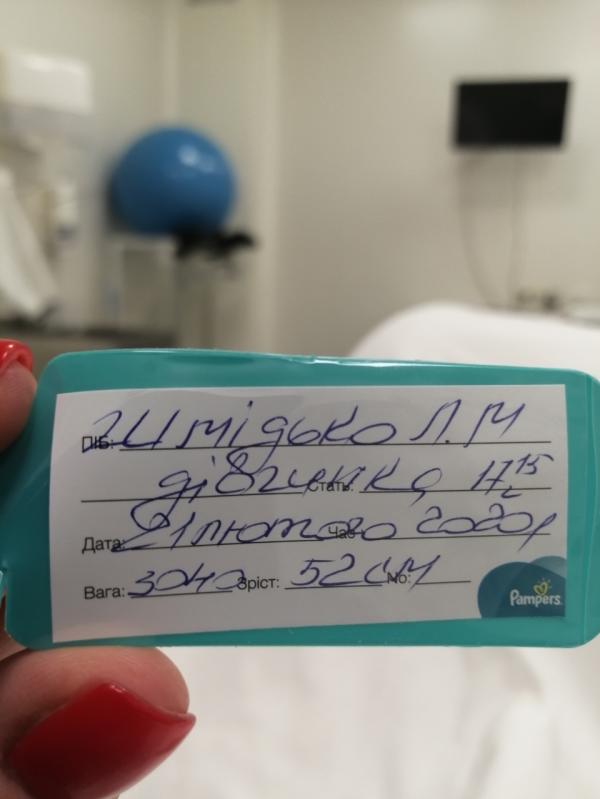 ПІБ: Шмідько Л.М
дівчинка Стать: 17 15
Дата: 21 лютого Час: 2020р
Вага: 3040 Зріст: 52 см No:
Pampers